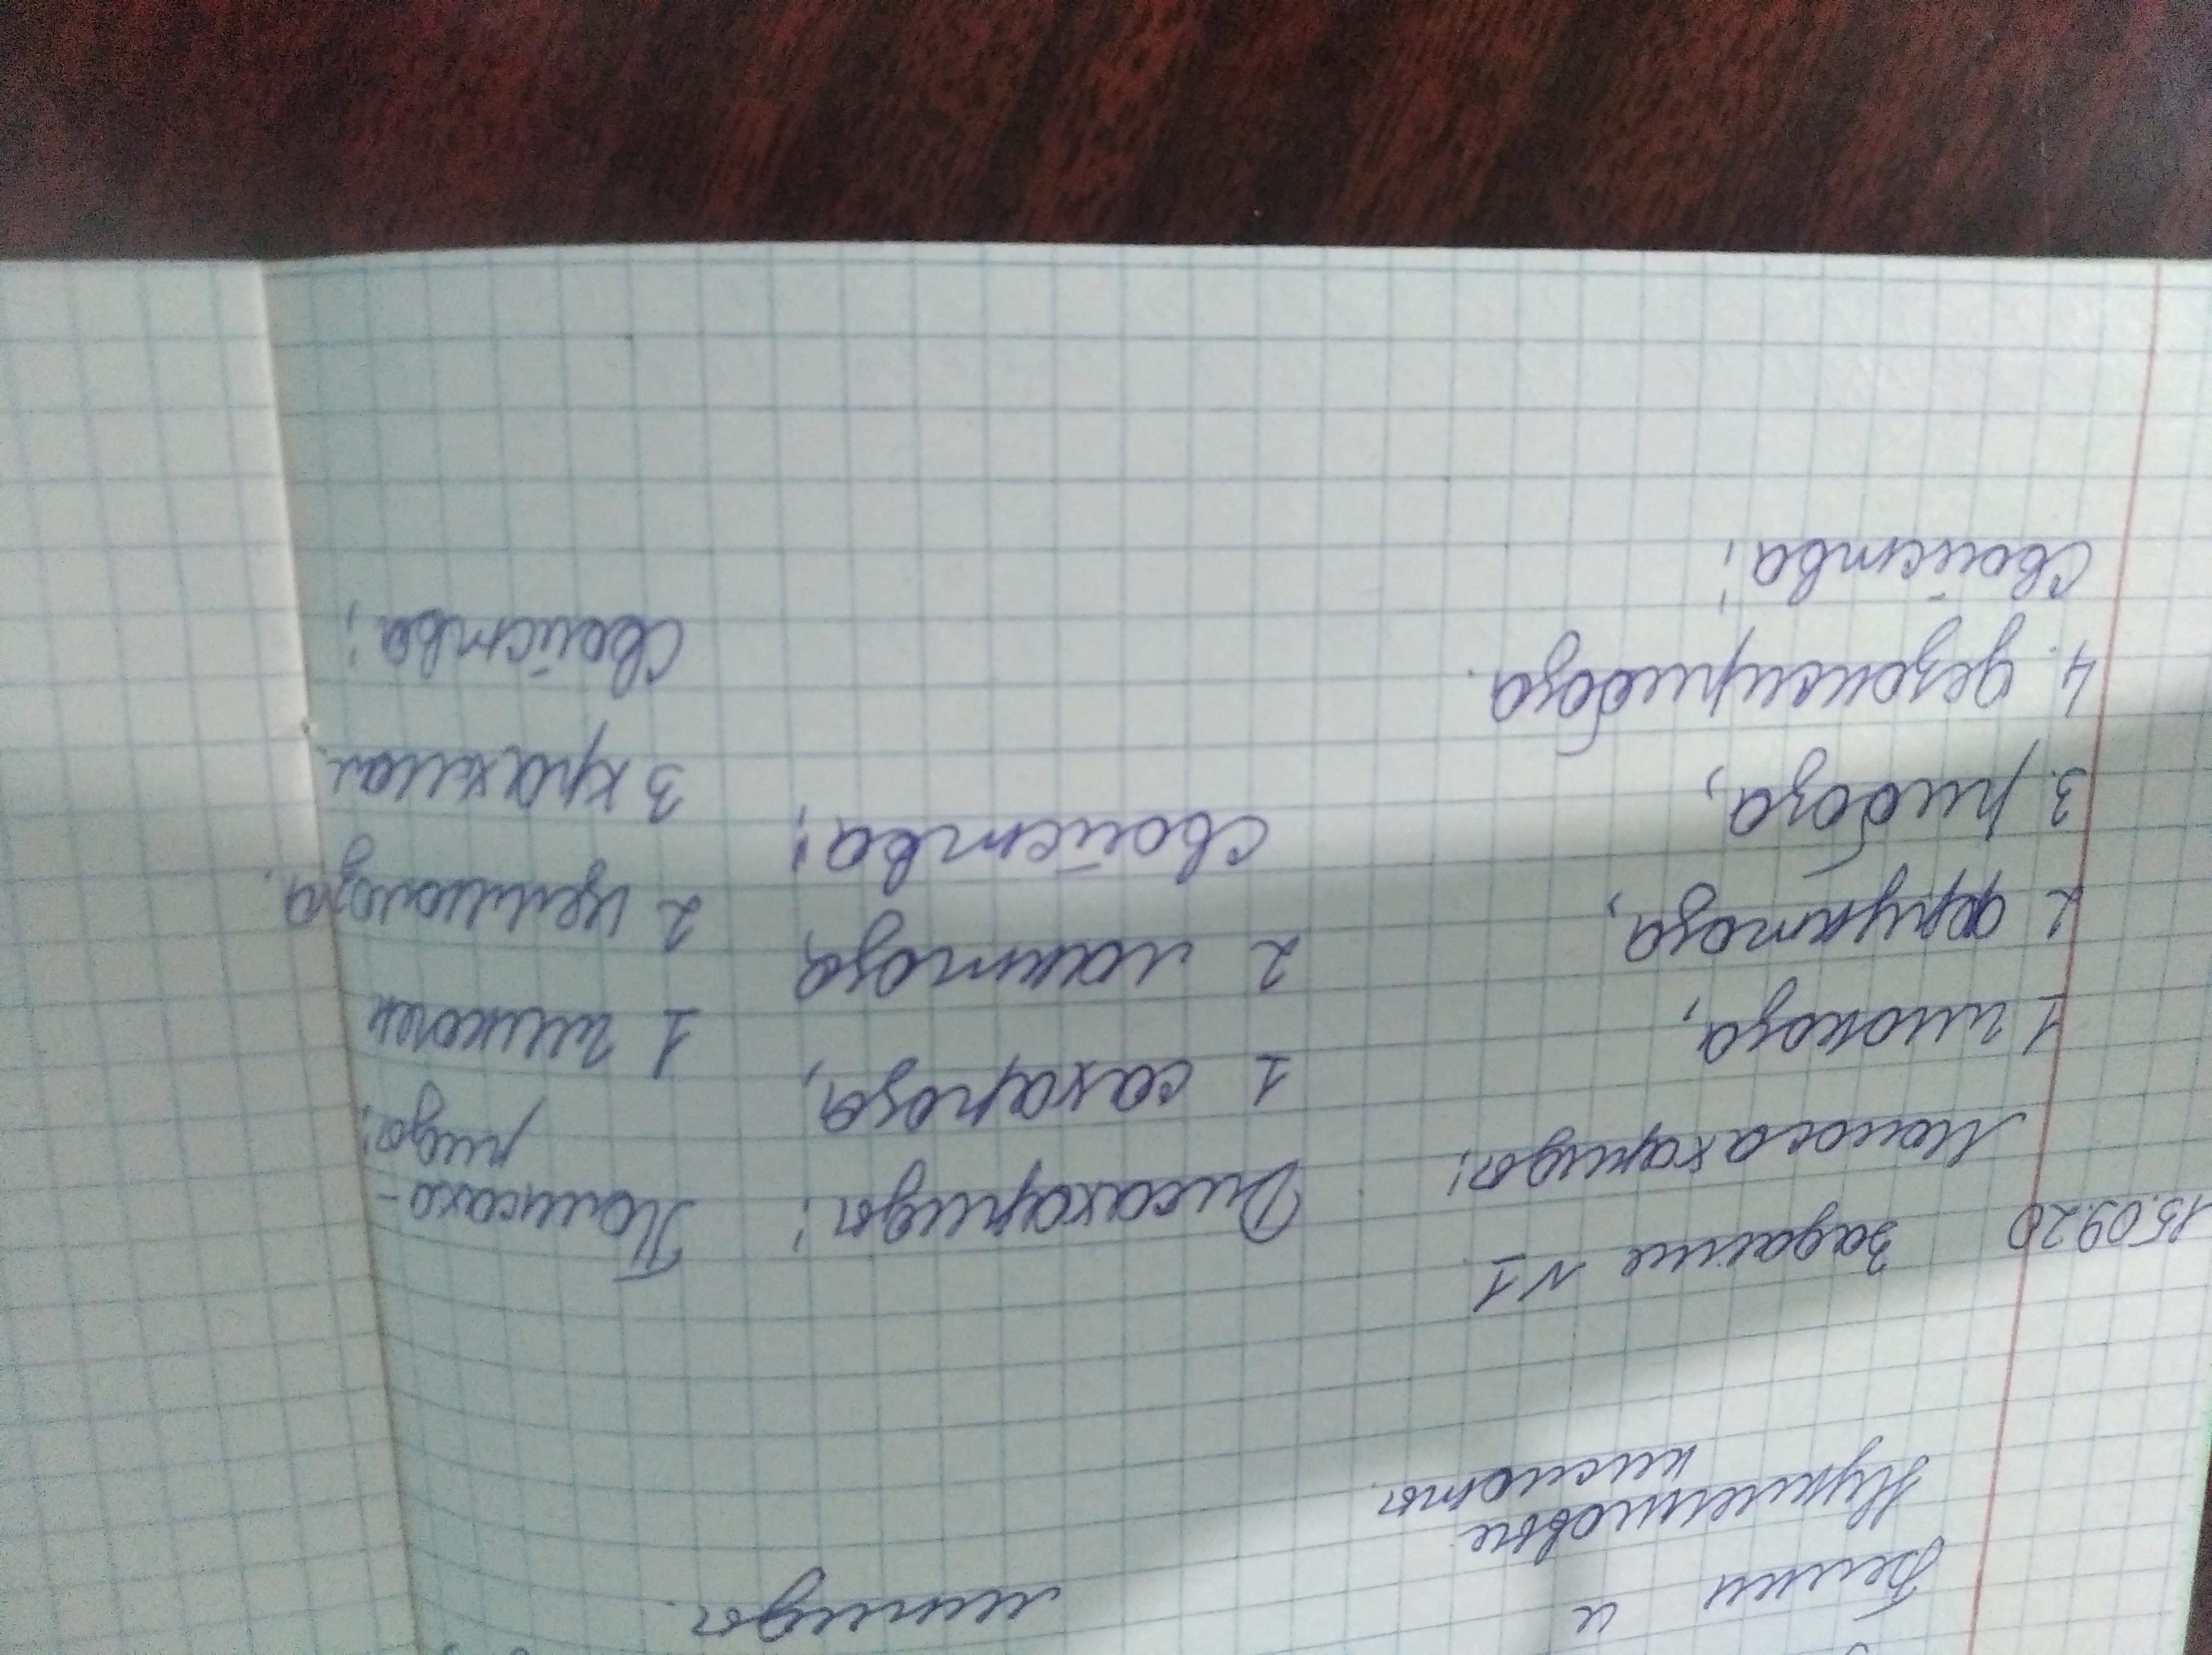 Белки и
Нуклеиновые
кислоты.
липиды.
15.09.20 Задание №1
Моносахариды:
1 глюкоза,
2 фруктоза,
3. рибоза,
4. дезоксирибоза.
Свойства:
Дисахариды:
1 сахароза,
2 лактоза,
свойства:
Полисаха-
риды:
1 гликоген
2 целлюлоза.
3 крахмал.
Свойства: